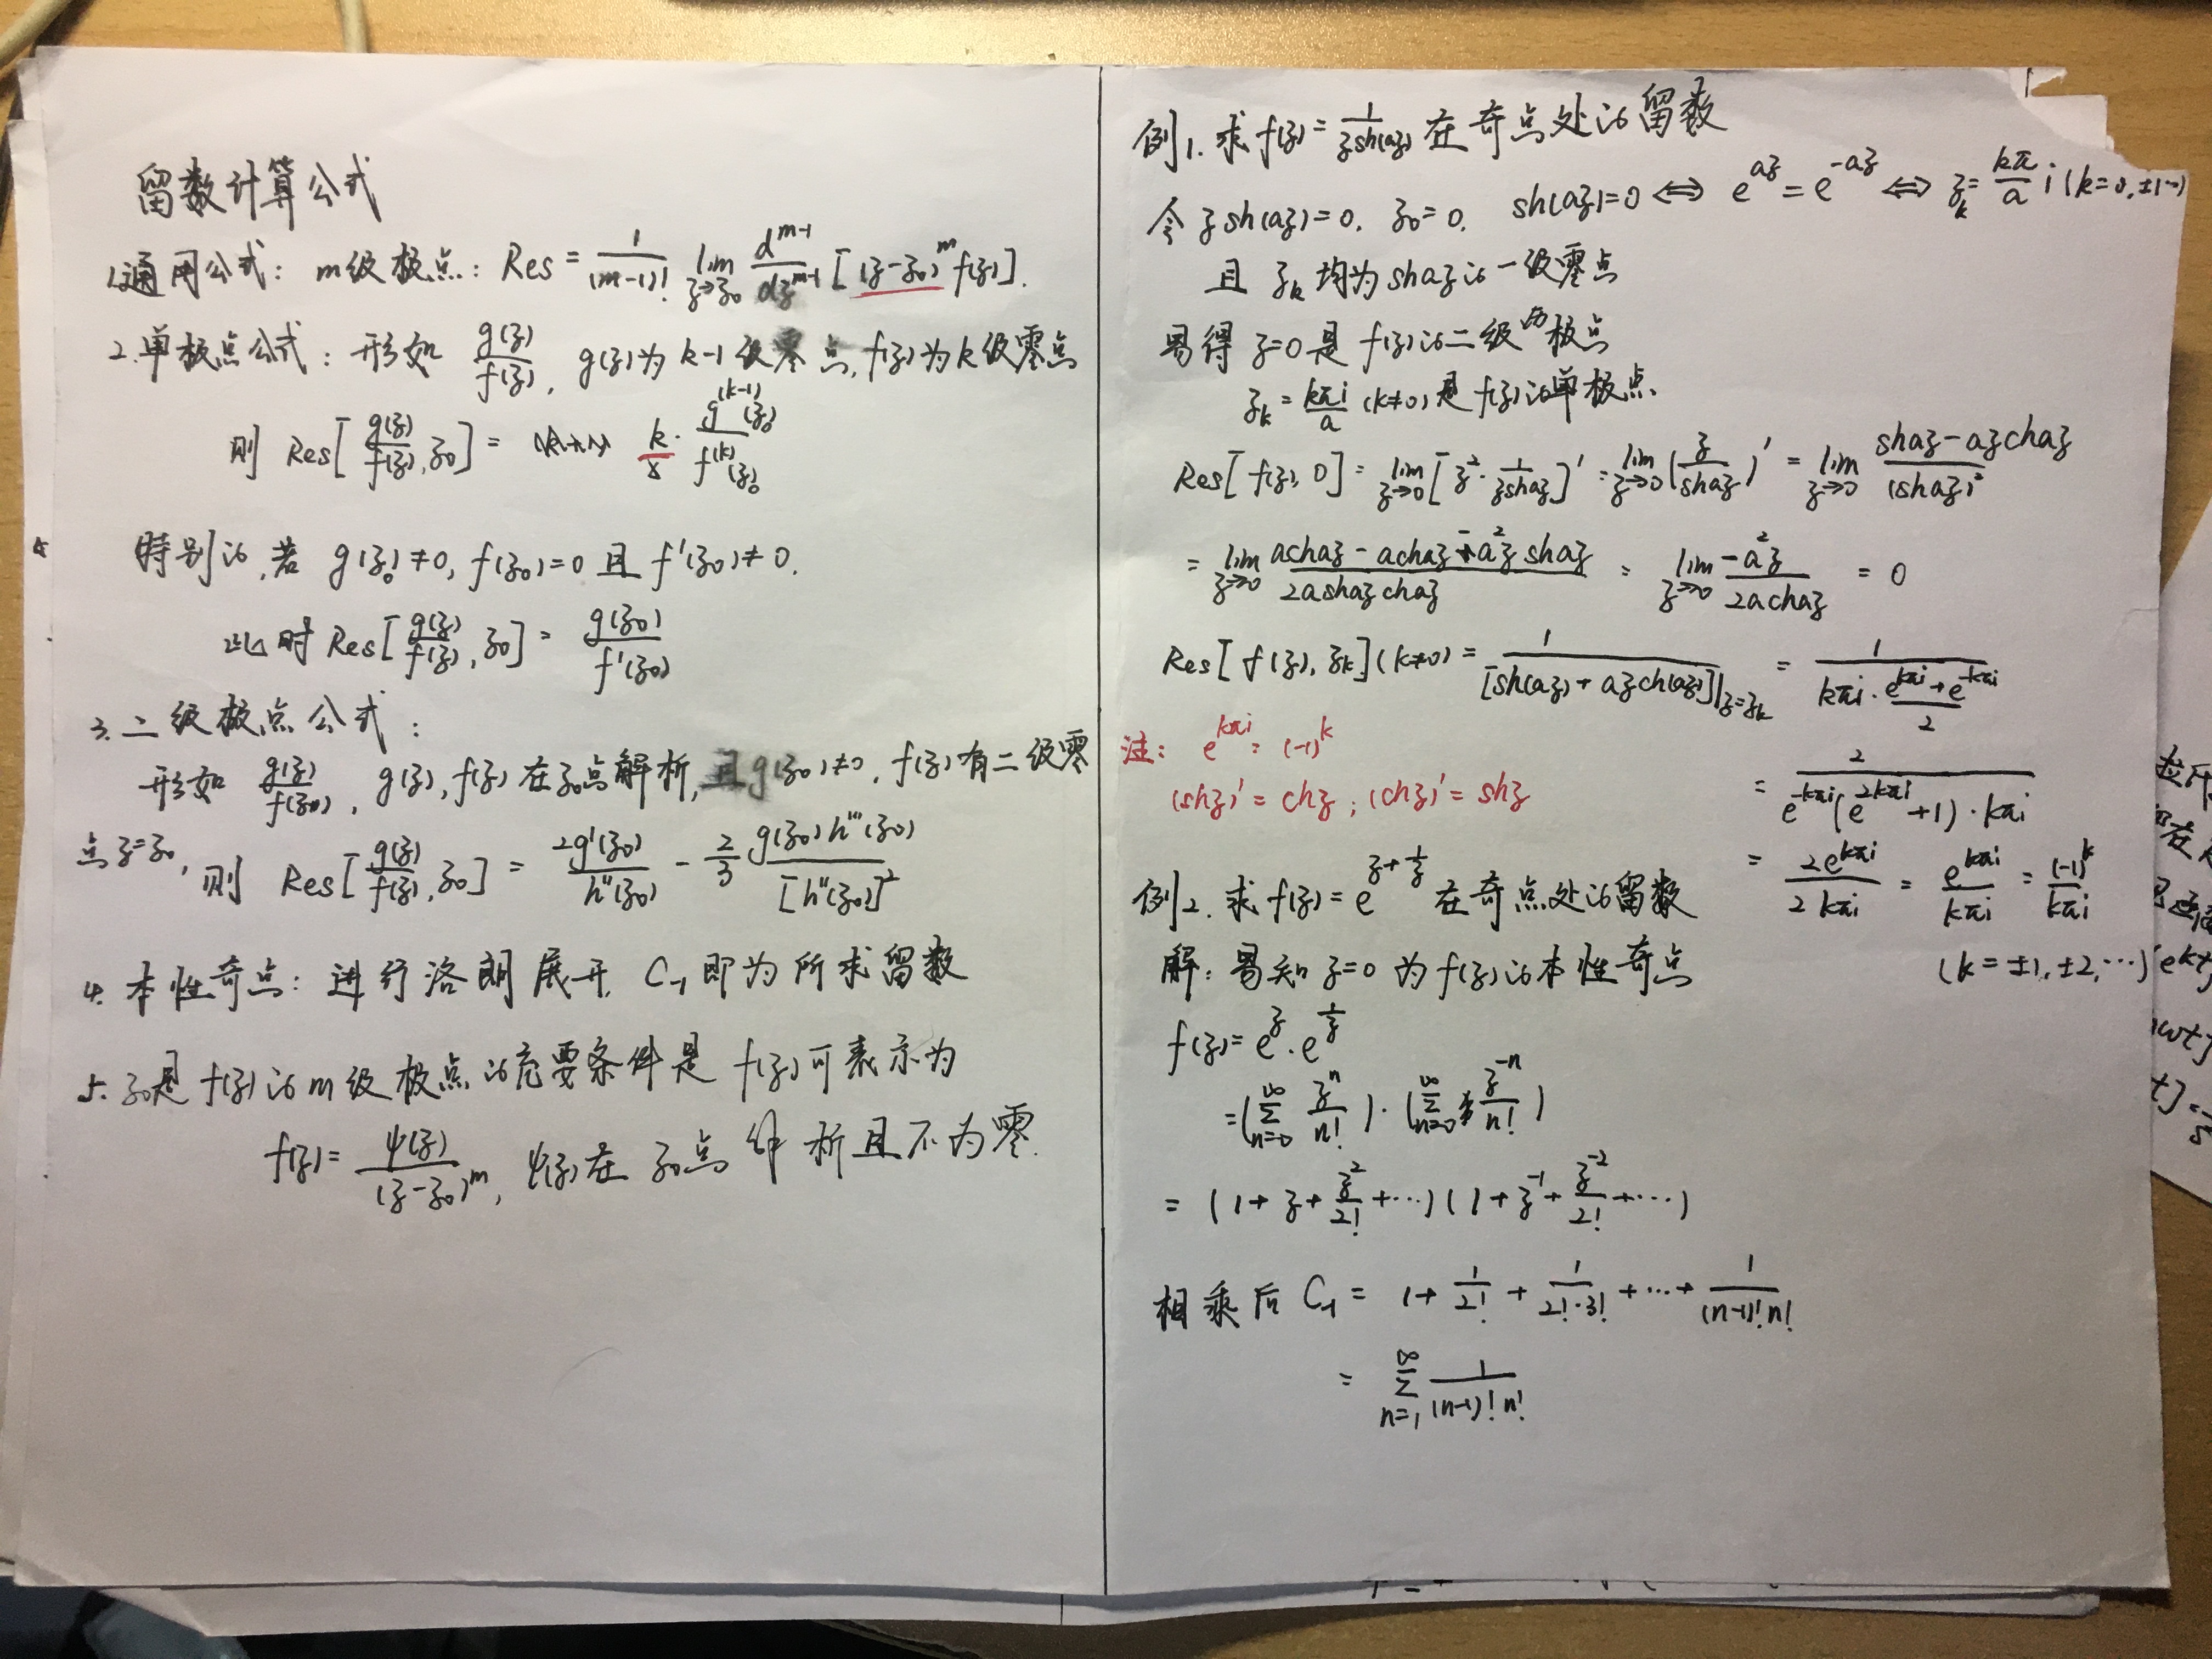 留数计算公式
1.通用公式: m级极点: Res = \frac{1}{(m-1)!} \lim_{z→z_0} \frac{d^{m-1}}{dz^{m-1}} [(z-z_0)^m f(z)].
2.单极点公式: 形如 \frac{g(z)}{f(z)}, g(z)为k-1级零点, f(z)为k级零点
则 Res[\frac{g(z)}{f(z)}, z_0] = k · \frac{g^{(k-1)}(z_0)}{f^{(k)}(z_0)}
特别的,若 g(z_0)≠0, f(z_0)=0 且 f'(z_0)≠0.
此时 Res[\frac{g(z)}{f(z)}, z_0] = \frac{g(z_0)}{f'(z_0)}
3.二级极点公式:
形如 \frac{g(z)}{f(z_0)}, g(z),f(z)在z_0点解析,且g(z_0)≠0, f(z)有二级零
点z=z_0, 则 Res[\frac{g(z)}{f(z)}, z_0] = \frac{2g'(z_0)}{h''(z_0)} - \frac{2}{3} \frac{g(z_0)h'''(z_0)}{[h''(z_0)]^2}
4.本性奇点: 进行洛朗展开, C_{-1}即为所求留数
5. z_0是f(z)的m级极点的充要条件是 f(z)可表示为
f(z)= \frac{ψ(z)}{(z-z_0)^m}, ψ(z)在 z_0点解析且不为零.
例1. 求f(z)= \frac{1}{zsh(az)} 在奇点处的留数
令 zsh(az)=0, z_0=0, sh(az)=0 ⟺ e^{az}=e^{-az} ⟺ z_k=\frac{kπ}{a}i (k=0,±1…)
且 z_k 均为shaz的一级零点
易得 z=0是f(z)的二级极点
z_k=\frac{kπi}{a} (k≠0)是f(z)的单极点
Res[f(z), 0] = \lim_{z→0} [z^2·\frac{1}{zshaz}]' = \lim_{z→0} (\frac{z}{shaz})' = \lim_{z→0} \frac{shaz-azchaz}{(shaz)^2}
= \lim_{z→0} \frac{achaz-achaz-a^2zshaz}{2ashazchaz} = \lim_{z→0} \frac{-a^2z}{2achaz} = 0
Res[f(z), z_k](k≠0) = \frac{1}{[sh(az)+azch(az)]|_{z=z_k}} = \frac{1}{kπi·\frac{e^{kπi}+e^{-kπi}}{2}}
注: e^{kπi}=(-1)^k
(shz)'=chz; (chz)'=shz
= \frac{2}{e^{-kπi}(e^{2kπi}+1)·kπi}
= \frac{2e^{kπi}}{2kπi} = \frac{e^{kπi}}{kπi} = \frac{(-1)^k}{kπi}
(k=±1,±2,…)
例2. 求f(z)=e^{z+\frac{1}{z}} 在奇点处的留数
解: 易知 z=0 为f(z)的本性奇点
f(z)=e^z·e^{\frac{1}{z}}
=(\sum_{n=0}^{∞} \frac{z^n}{n!})·(\sum_{n=0}^{∞} \frac{z^{-n}}{n!})
= (1+z+\frac{z^2}{2!}+…)(1+z^{-1}+\frac{z^{-2}}{2!}+…)
相乘后 C_{-1} = 1+\frac{1}{2!}+\frac{1}{2!·3!}+…+\frac{1}{(n-1)!n!}
= \sum_{n=1}^{∞} \frac{1}{(n-1)!n!}